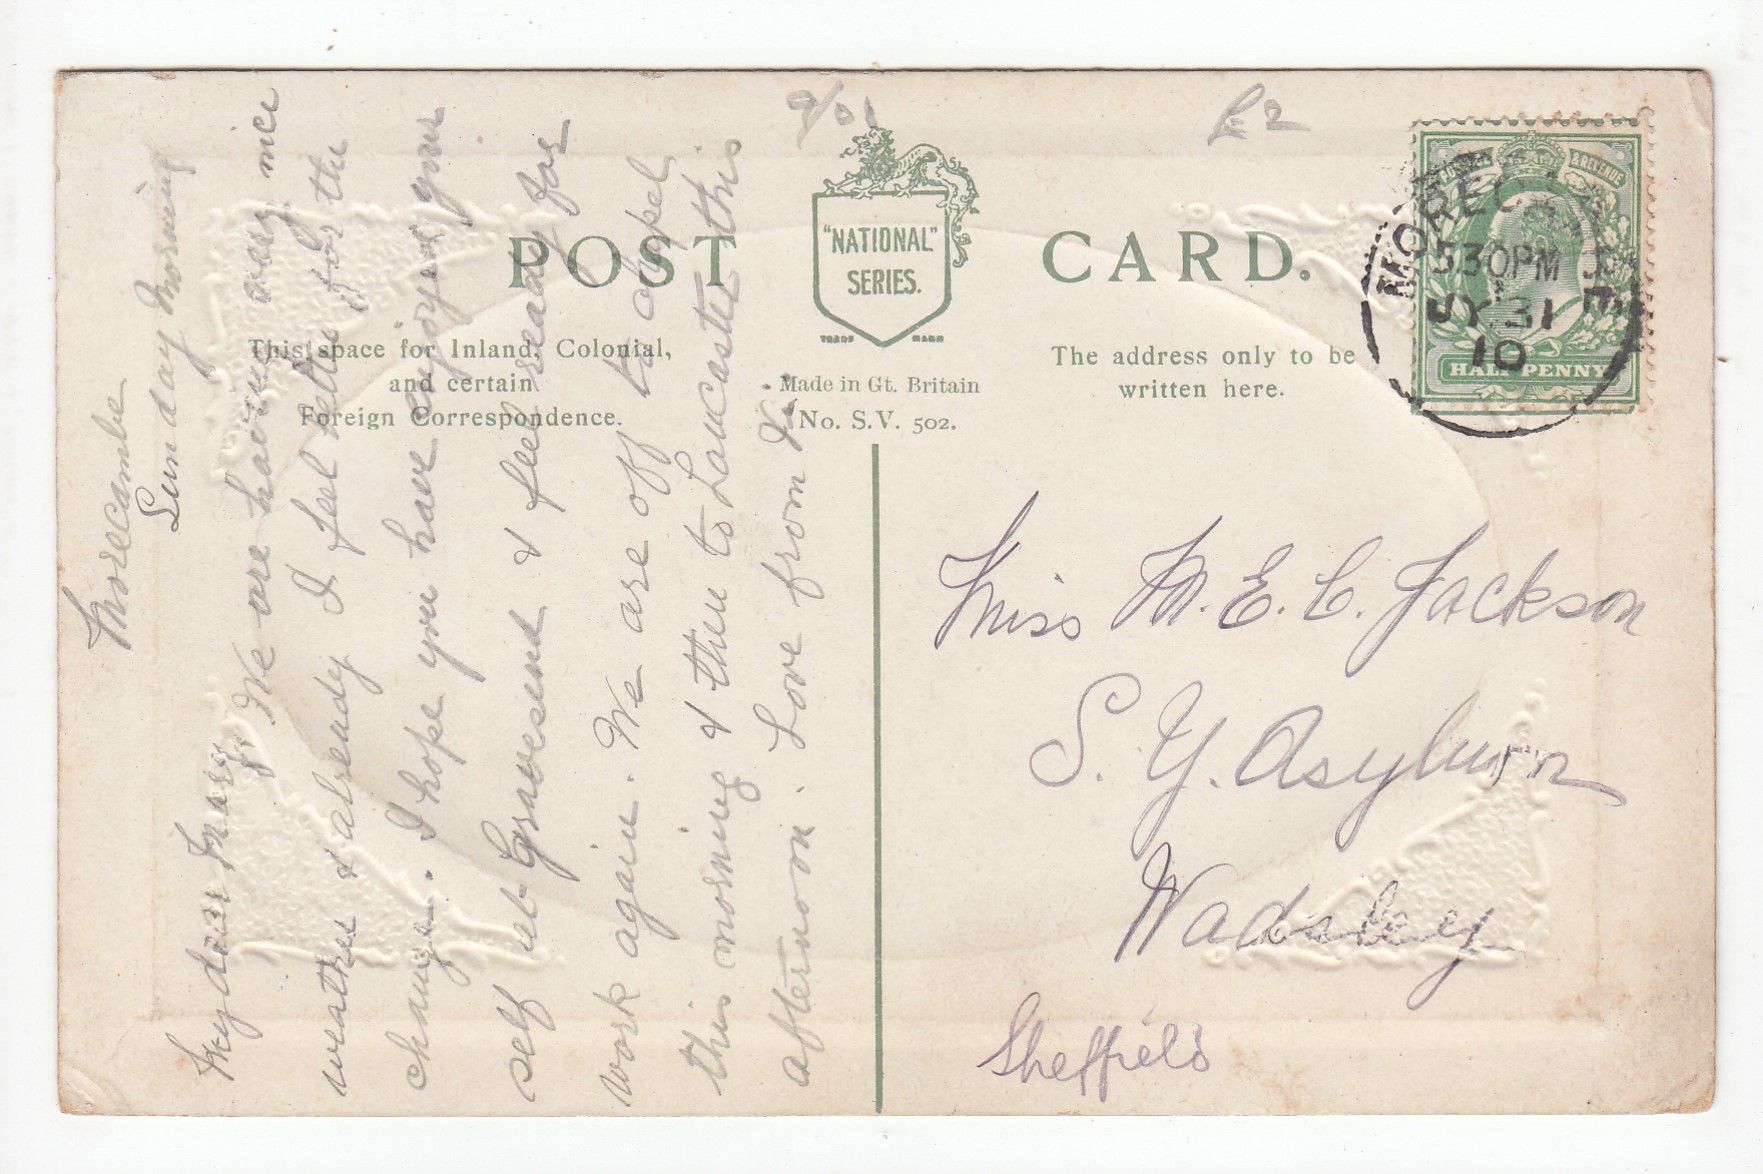 9/01
R2
POST CARD.
"NATIONAL"
SERIES.
TRADE MARK
This space for Inland, Colonial,
and certain
Foreign Correspondence.
Made in Gt. Britain
No. S.V. 502.
The address only to be
written here.
POSTAGE & REVENUE
HALF PENNY
MORECAMBE
5 30 PM
JY 31
10
Morecambe
Sunday Morning
My dear Mary,
We are having very nice
weather & already I feel better for the
change. I hope you have enjoyed your
self at Gravesend & feel ready for
work again. We are off to chapel
this morning & then to Lancaster this
afternoon. Love from
Miss M. E. C. Jackson
S. Y. Asylum
Wadsley
Sheffield